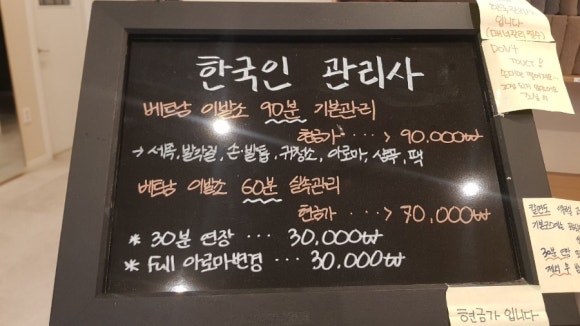 한국인 관리사
베트남 이발소 90분 기본관리
현금가 ····> 90.000₩
→ 서족, 발각질, 손·발톱, 귀청소, 아로마, 샴푸, 팩
베트남 이발소 60분 실속관리
현금가 ····> 70,000₩
* 30분 연장 ··· 30.000₩
* Full 아로마변경 ··· 30.000₩
입니다
DON'T
TOUCH
현금가 입니다
30분 연장